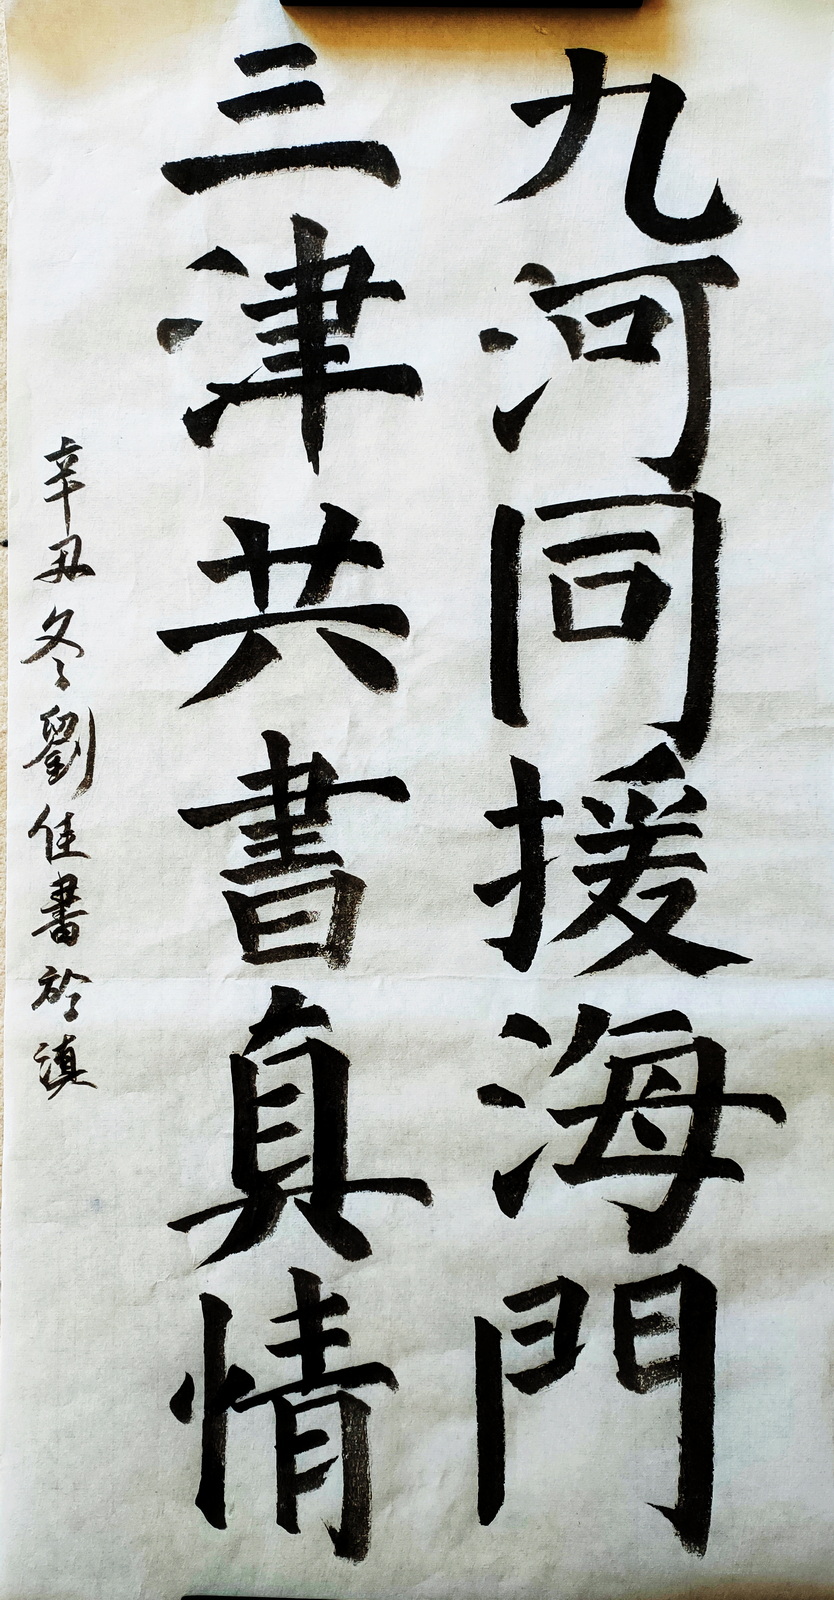 九河同援海門
三津共書真情
辛丑冬劉佳書於滇